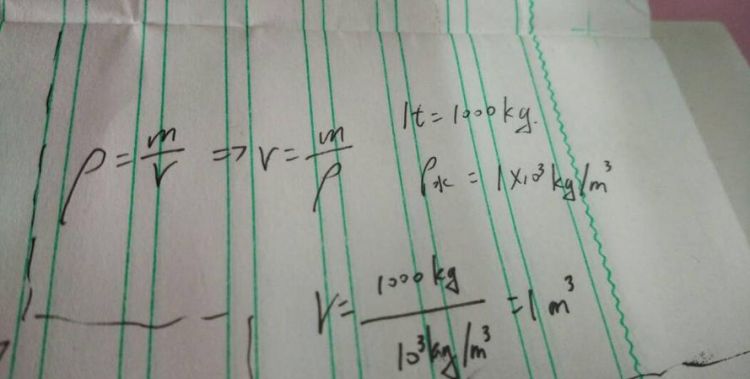 ρ = m/V => V = m/ρ
1t = 1000kg.
ρ水 = 1×10³kg/m³
V = 1000kg / 10³kg/m³ = 1m³